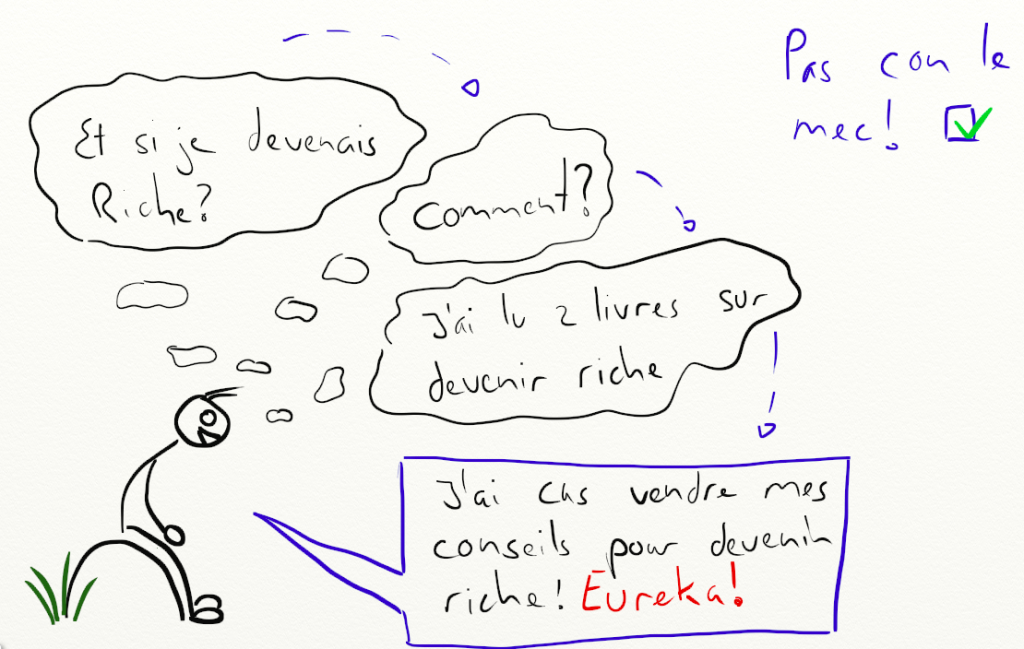 Et si je devenais
Riche?
Comment?
J'ai lu 2 livres sur
devenir riche
J'ai cas vendre mes
conseils pour devenir
riche! Eureka!
Pas con le
mec!